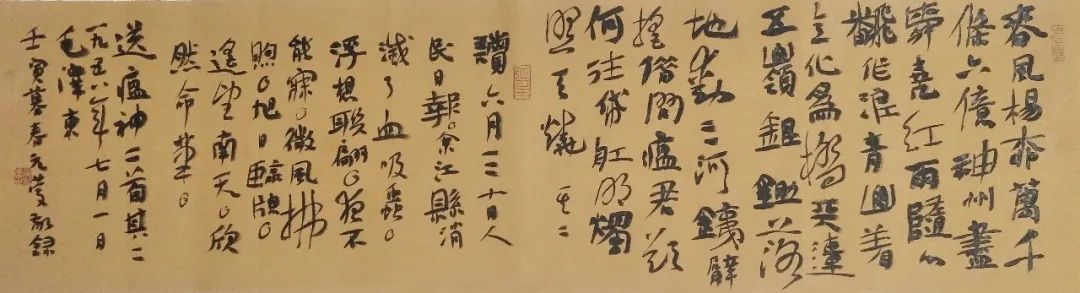 春風楊柳萬千
條六億神州盡
舜堯紅雨隨心
翻作浪青山着
意化爲橋天連
五嶺銀鋤落
地動三河鐵臂
搖借問瘟君欲
何往紙船明燭
照天燒 其二
讀六月三十日人
民日報。余江縣消
滅了血吸蟲。
浮想聯翩。夜不
能寐。微風拂
煦。旭日臨牕。
遙望南天。欣
然命筆。
送瘟神二首其二
一九五八年七月一日
毛澤東
壬寅暮春元敬錄